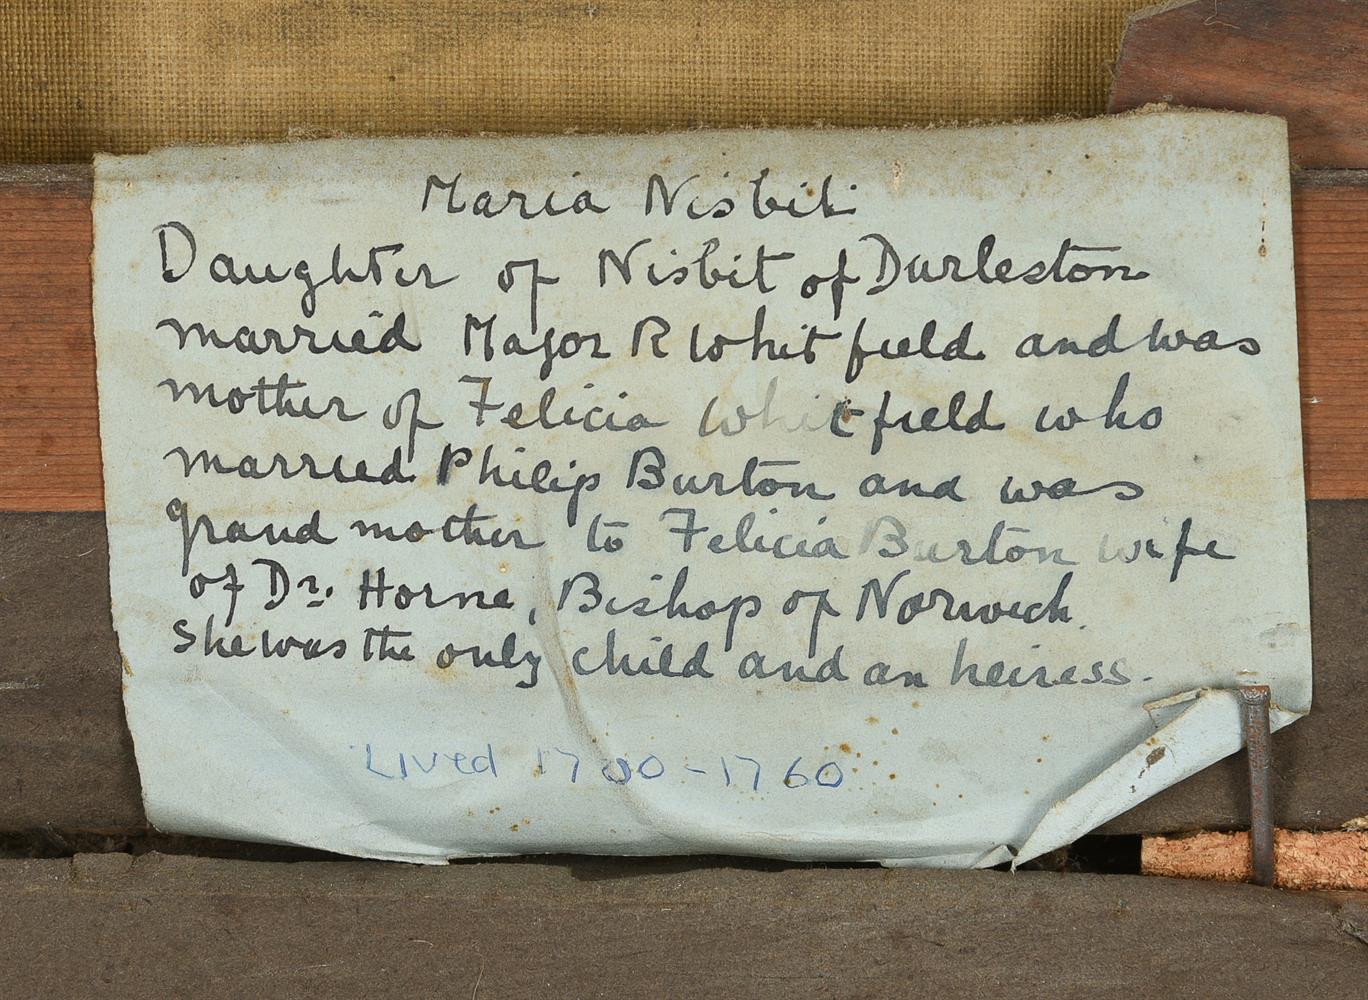 Maria Nisbit.
Daughter of Nisbit of Durleston
married Major R Whitfield and was
mother of Felicia Whitfield who
married Philip Burton and was
grand mother to Felicia Burton wife
of Dr. Horne, Bishop of Norwich.
She was the only child and an heiress.
Lived 1700-1760